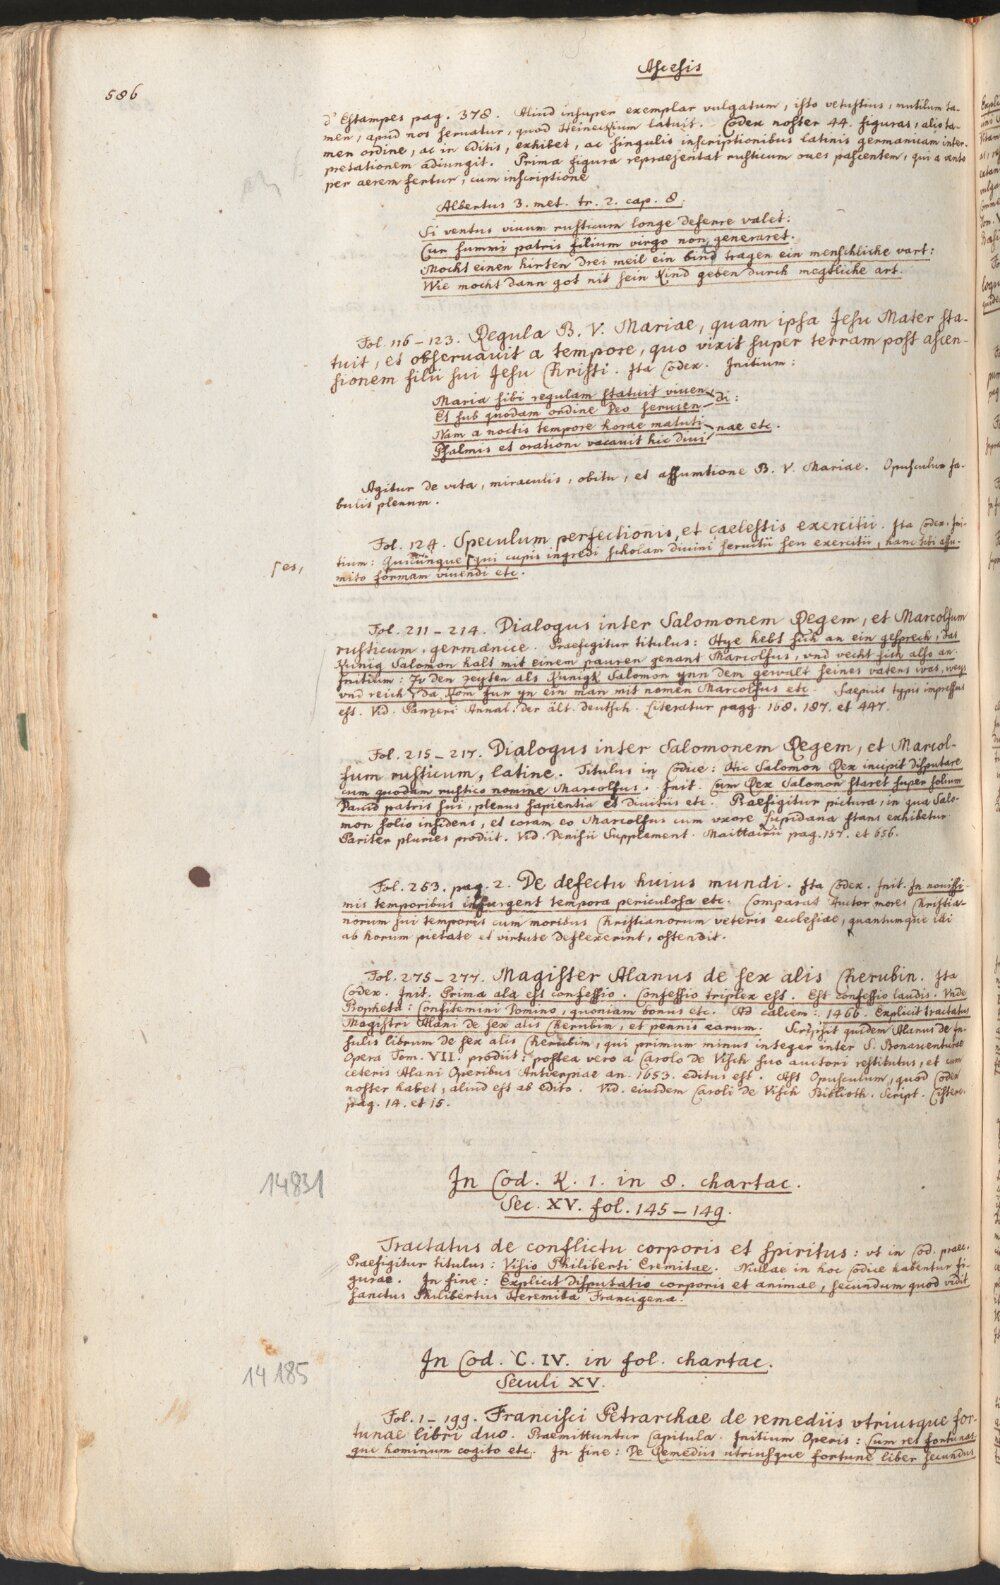 586
Ascesis
d'Estampes pag. 378. Aliud insuper exemplar vulgatum, isto vetustius, mutilum ta-
men, apud nos seruatur, quod Heineckium latuit. Codex noster 44. figuras, alio ta-
men ordine, ac in editis, exhibet, ac singulis inscriptionibus latinis germanicam inter-
pretationem adiungit. Prima figura repraesentat rusticum oues pascentem, qui a vento
per aerem fertur, cum inscriptione
Albertus 3. met. tr. 2. cap. 8.
Si ventus viuum rusticum longe deferre valet:
Cur summi patris filium virgo non generaret.
Mocht einen hirten drei meil ein bind tragen ein menschliche vart:
Wie mocht dann got nit sein kind geben durch magtliche art.
Fol. 116-123. Regula B. V. Mariae, quam ipsa Jesu Mater sta-
tuit, et obseruauit a tempore, quo vixit super terram post ascen-
sionem filii sui Jesu Christi. Ita Codex. Initium:
Maria sibi regulam statuit viuen
Et sub quodam ordine Deo seruien - di:
Nam a noctis tempore horae matuti
Psalmis et orationi vacauit hic diui - nae etc.
Agitur de vita, miraculis, obitu, et assumtione B. V. Mariae. Opusculum fa-
bulis plenum.
Fol. 124. Speculum perfectionis, et caelestis exercitii. Ita Codex. Ini-
tium: Quicunque qui cupis ingredi scholam diuini seruitii seu exercitii, hanc tibi assu-
⌈es,
mito formam viuendi etc.
Fol. 211-214. Dialogus inter Salomonem Regem, et Marcolfum
rusticum, germanice. Praefigitur titulus: Hye hebt sich an ein gesprech, das
Kunig Salomon halt mit einem pauren genant Marcolfus, vnd vecht sich also an.
Initium: Zu den zeyten als Kunigk Salomon ynn dem gewalt seines vaters was, weys
vnd reich, da kom fur yn ein man mit nomen Marcolfus etc. Saepius typis impressus
est. Vid. Panzeri Annal. der ält. deutsch. Literatur pagg. 168. 187. et 447.
Fol. 215-217. Dialogus inter Salomonem Regem, et Marcol-
fum rusticum, latine. Titulus in Codice: Hic Salomon Rex incipit disputare
cum quodam rustico nomine Marcolfus. Init. Cum Rex Salomon staret super solium
Dauid patris sui, plenus sapientia et diuitiis etc. Praefigitur pictura, in qua Salo-
mon solio insidens, et coram eo Marcolfus cum vxore Jupidana stans exhibetur.
Pariter pluries prodiit. Vid. Denisii Supplement. Maittairii pag. 157. et 656.
Fol. 253. pag. 2. De defectu huius mundi. Ita Codex. Init. In nouissi-
mis temporibus insurgent tempora periculosa etc. Comparat Auctor mores Christia-
norum sui temporis cum moribus Christianorum veteris ecclesiae, quantumque illi
ab horum pietate et virtute deflexerint, ostendit.
Fol. 275-277. Magister Alanus de sex alis Cherubin. Ita
Codex. Init. Prima ala est confessio. Confessio triplex est. Est confessio laudis. Vnde
Propheta: Confitemini Domino, quoniam bonus etc. Ad calcem: 1466. Explicit tractatus
Magistri Alani de sex alis Cherubim, et pennis earum. Scripsit quidem Alanus de In-
sulis librum de sex alis Cherubim, qui primum minus integer inter S. Bonauenturae
Opera Tom. VII. prodiit; postea vero a Carolo de Visch suo auctori restitutus, et cum
ceteris Alani Operibus Antuerpiae an. 1653. editus est. Ast Opusculum, quod Codex
noster habet, aliud est ab edito. Vid. eiusdem Caroli de Visch Biblioth. Script. Cisterc.
pag. 14. et 15.
14831
In Cod. K. 1. in 8. chartac.
Sec. XV. fol. 145-149.
Tractatus de conflictu corporis et spiritus: vt in Cod. praec.
Praefigitur titulus: Visio Philiberti Eremitae. Nullae in hoc Codice habentur fi-
gurae. In fine: Explicit disputatio corporis et animae, secundum quod vidit
sanctus Philibertus Heremita Francigena.
14185
In Cod. C. IV. in fol. chartac.
Seculi XV.
Fol. 1-199. Francisci Petrarchae de remediis vtriusque for-
tunae libri duo. Praemittuntur Capitula. Initium Operis: Cum res fortunas-
que hominum cogito etc. In fine: De Remediis utriusque fortune liber secundus